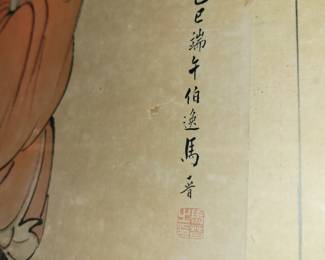 己巳端午伯逸馬晉